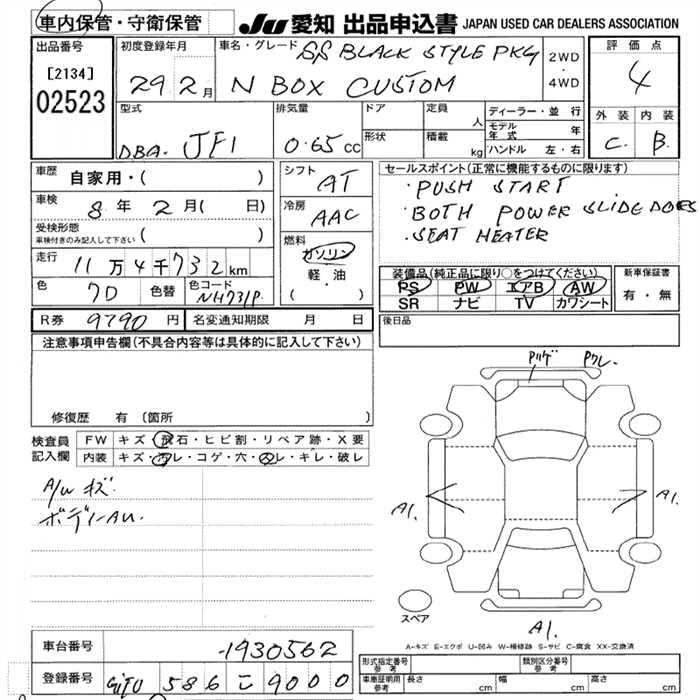 車内保管・守衛保管
JU 愛知 出品申込書 JAPAN USED CAR DEALERS ASSOCIATION
出品番号
[2134]
02523
初度登録年月
29 2月
車名・グレード
SS BLACK STYLE PKG
N BOX CUSTOM
2WD
・
4WD
評価点
4
外装 内装
C. B.
型式
DBA- JF1
排気量
0.65 cc
ドア
形状
定員 人
積載 kg
ディーラー・並行
モデル年式 年
ハンドル 左・右
車歴
自家用・( )
車検
8年 2月( 日)
受検形態
車検付きのみ記入して下さい ( )
走行
11万4千732km
色
クロ 色替
色コード
NH731P
シフト
AT
冷房
AAC
燃料
ガソリン
軽・油
( ・ )
セールスポイント(正常に機能するものに限ります)
・PUSH START
・BOTH POWER SLIDE DOORS
・SEAT HEATER
装備品(純正品に限り○をつけてください)
PS PW エアB AW
SR ナビ TV カワシート
新車保証書
有・無
R券 9790 円 名変通知期限 月 日
後日品
注意事項申告欄(不具合内容等は具体的に記入して下さい)
修復歴 有(箇所 )
検査員
記入欄
FW キズ・飛石・ヒビ割・リペア跡・X要
内装 キズ・汚レ・コゲ・穴・スレ・キレ・破レ
A/W キズ
ボディーAU.
A1.
A1.
A1.
スペア
A-キズ E-エクボ U-凹み W-補修跡 S-サビ C-腐食 XX-交換済
車台番号 -1930562
登録番号 GIFU 586 こ 9000
形式指定番号
参考
類別区分番号
参考
車庫証明用
参考
長さ cm 幅 cm 高さ cm